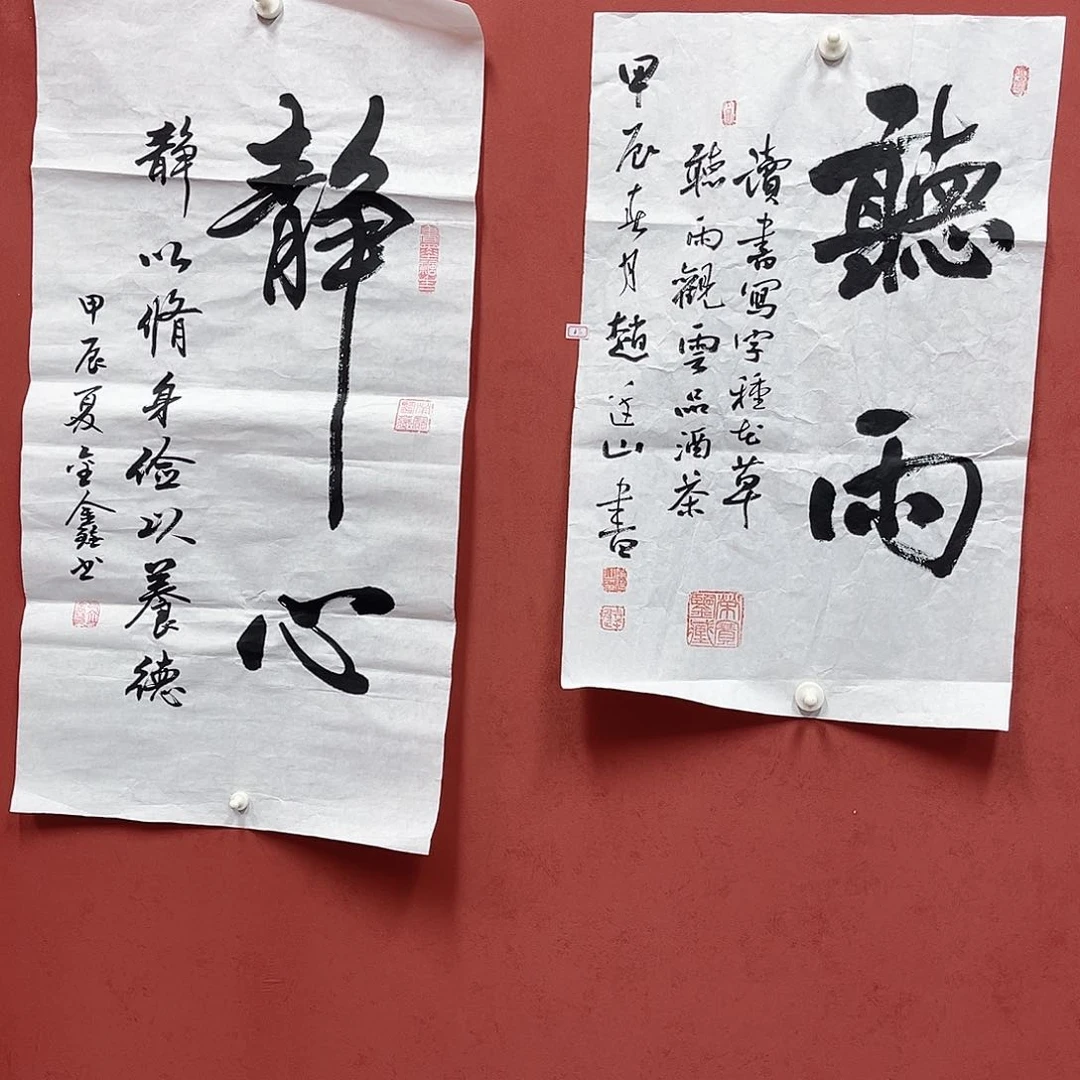 聽雨
讀書寫字種花草
聽雨觀雲品酒茶
甲辰春月趙廷山書
靜心
靜以脩身儉以養德
甲辰夏金鑫书
榮寶鑒藏